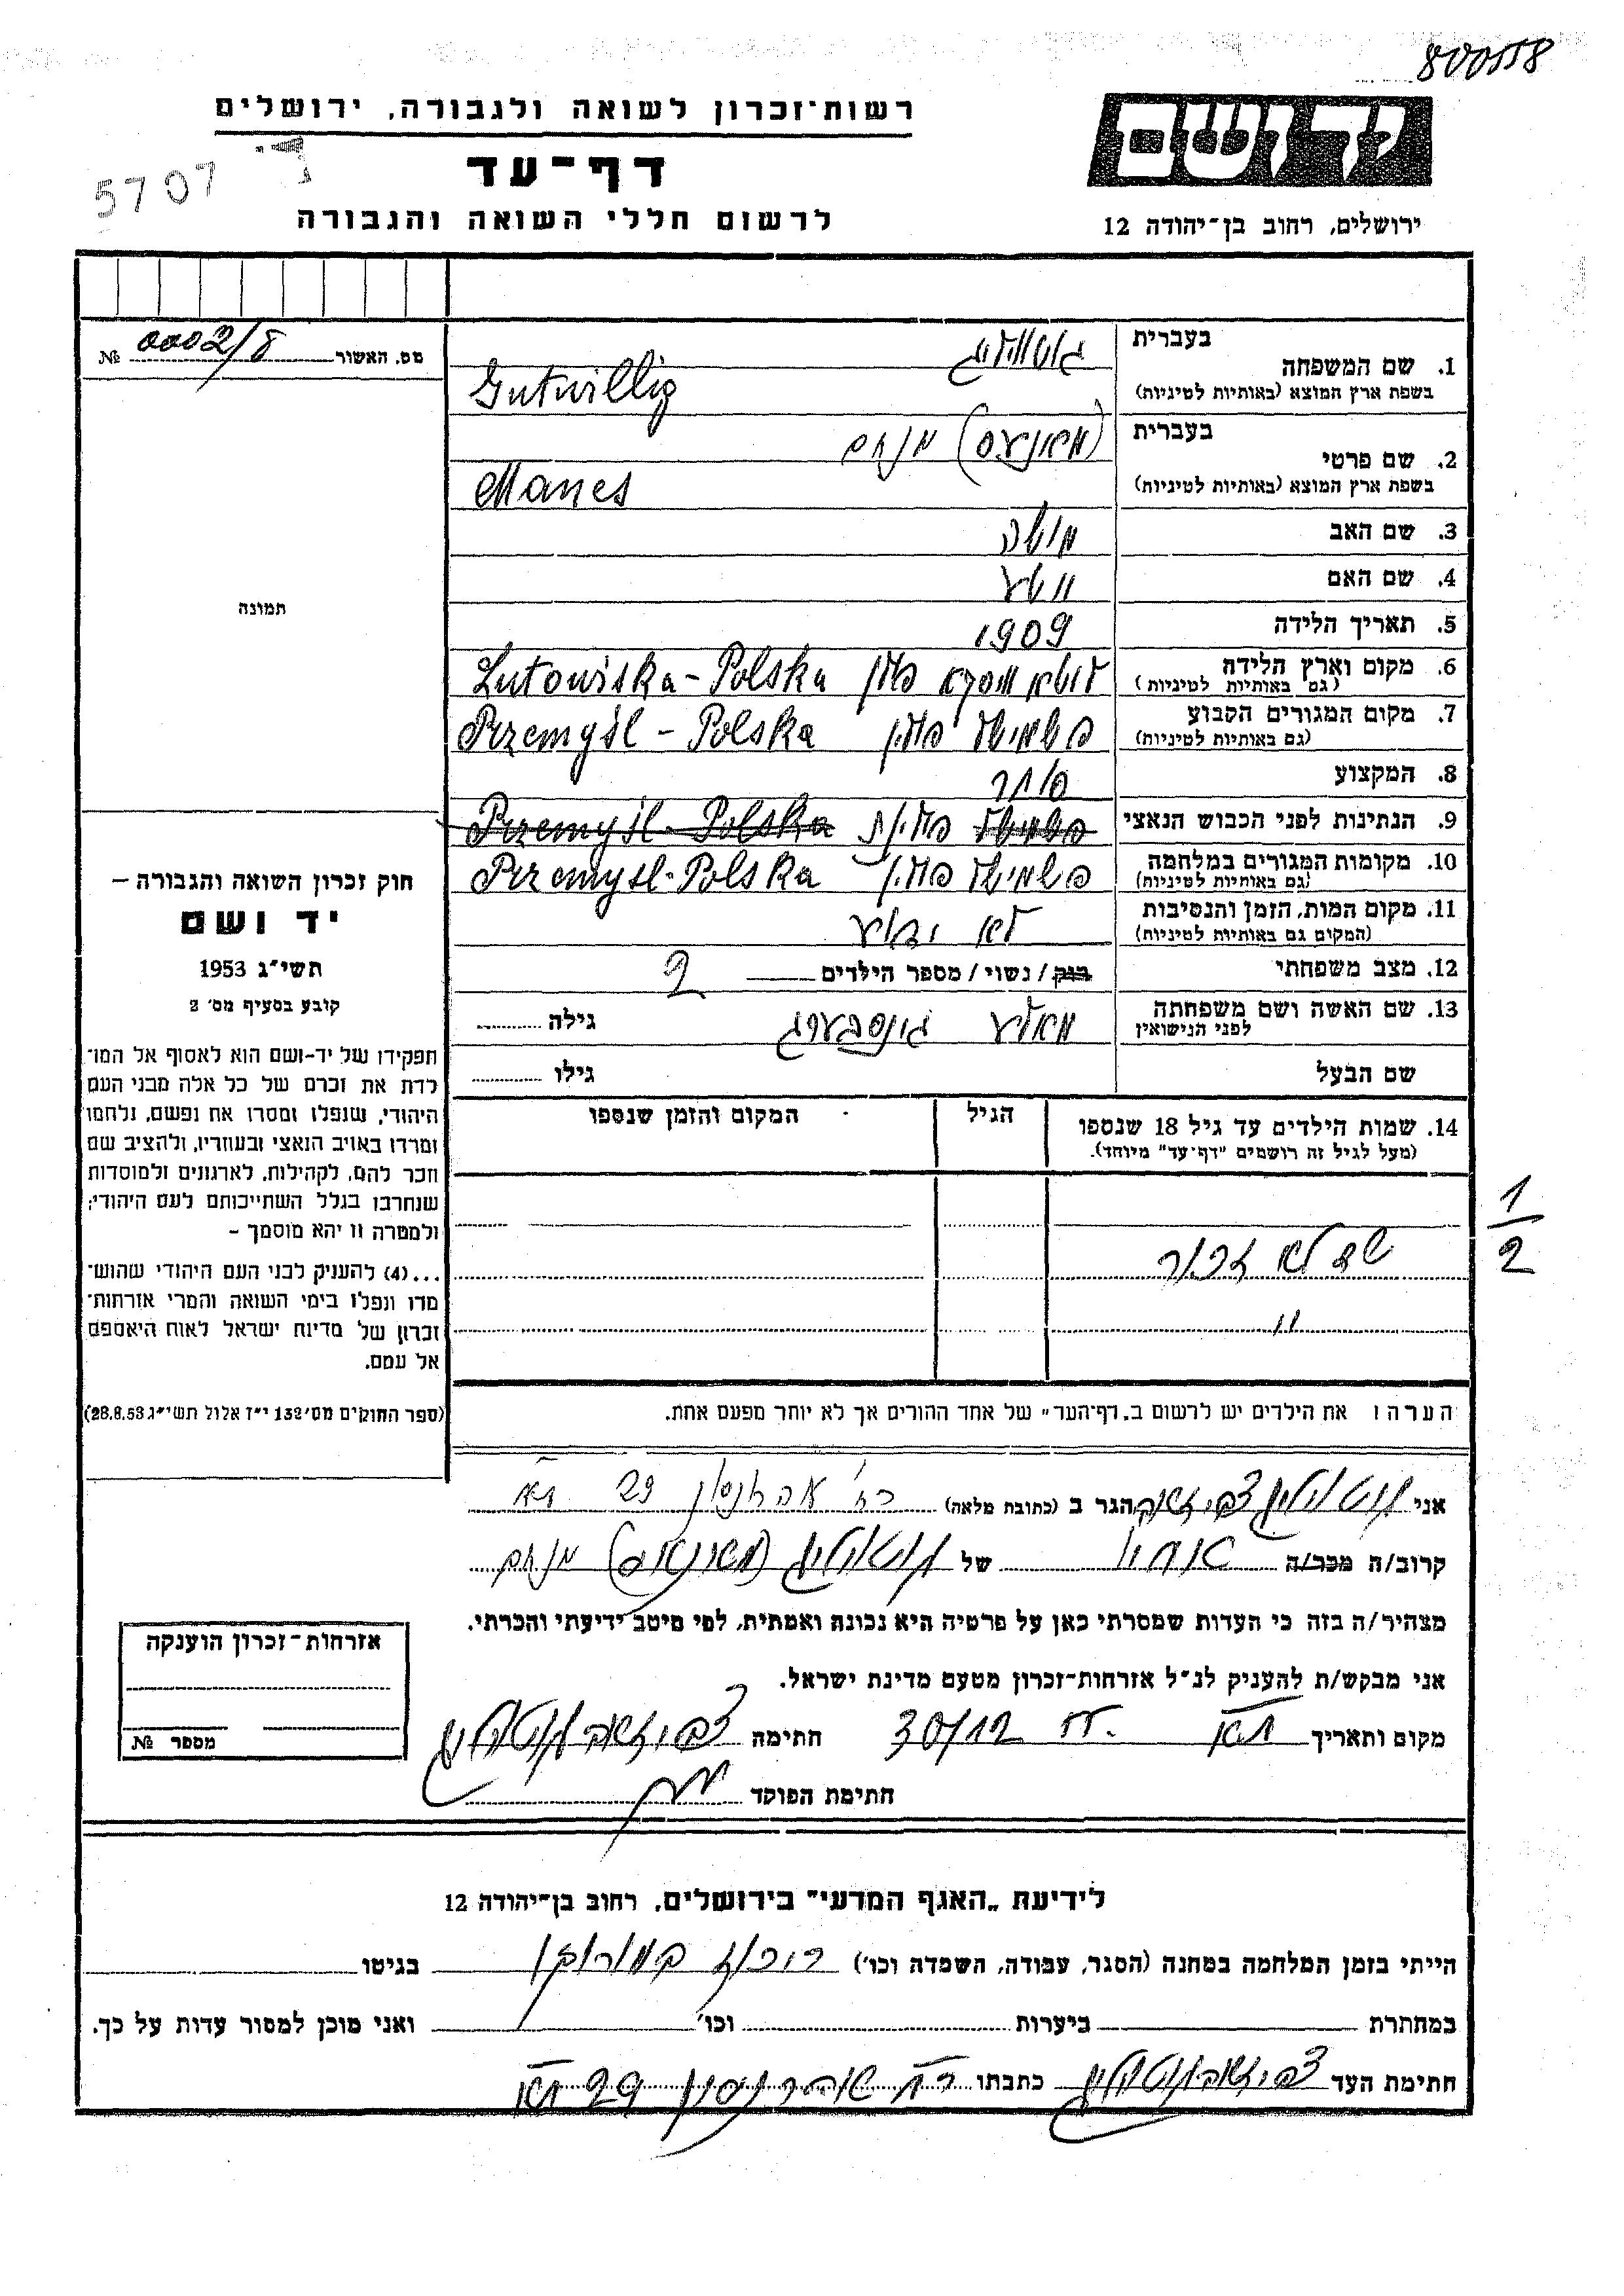 800558
רשות-זכרון לשואה ולגבורה, ירושלים
יד ושם
דף-עד
5707
לרשום חללי השואה והגבורה
ירושלים, רחוב בן-יהודה 12
מס. האשור 0002/8 №
1. שם המשפחה בעברית גוטוויליג
בשפת ארץ המוצא (באותיות לטיניות) Gutwillig
2. שם פרטי בעברית (מאנעס) מנחם
בשפת ארץ המוצא (באותיות לטיניות) Manes
3. שם האב משה
4. שם האם
5. תאריך הלידה 1909
6. מקום וארץ הלידה (גם באותיות לטיניות) לוטאוויסקא פולין Lutowiska-Polska
7. מקום המגורים הקבוע (גם באותיות לטיניות) פשמישל פולין Przemyśl - Polska
8. המקצוע סוחר
9. הנתינות לפני הכבוש הנאצי פשמישל פולנית Przemyśl-Polska
10. מקומות המגורים במלחמה (גם באותיות לטיניות) פשמישל פולין Przemysl-Polska
11. מקום המות, הזמן והנסיבות (המקום גם באותיות לטיניות) לא ידוע
12. מצב משפחתי רווק / נשוי / מספר הילדים 2
13. שם האשה ושם משפחתה לפני הנישואין מאלע גינסבערג גילה
שם הבעל גילו
14. שמות הילדים עד גיל 18 שנספו (מעל לגיל זה רושמים "דף-עד" מיוחד).
הגיל
המקום והזמן שנספו
שם לא זכור
"
1/2
הערה: את הילדים יש לרשום ב"דף-העד" של אחד ההורים אך לא יותר מפעם אחת.
תמונה
חוק זכרון השואה והגבורה –
יד ושם
תשי"ג 1953
קובע בסעיף מס' 2
תפקידו של יד-ושם הוא לאסוף אל המו-
לדת את זכרם של כל אלה מבני העם
היהודי, שנפלו ומסרו את נפשם, נלחמו
ומרדו באויב הנאצי ובעוזריו, ולהציב שם
וזכר להם, לקהילות, לארגונים ולמוסדות
שנחרבו בגלל השתייכותם לעם היהודי;
ולמטרה זו יהא מוסמך –
...(4) להעניק לבני העם היהודי שהוש-
מדו ונפלו בימי השואה והמרי אזרחות-
זכרון של מדינת ישראל לאות היאספם
אל עמם.
(ספר החוקים מס' 132 י"ז אלול תשי"ג 28.8.53)
אני גוטוויליג צבי זאב הגר ב (כתובת מלאה) רח' אהרנסון 29 ת"א
קרוב/ה מכר/ה אחיו של גוטוויליג (מאנעס) מנחם
מצהיר/ה בזה כי העדות שמסרתי כאן על פרטיה היא נכונה ואמתית, לפי מיטב ידיעתי והכרתי.
אני מבקש/ת להעניק לנ"ל אזרחות-זכרון מטעם מדינת ישראל.
מקום ותאריך ת"א 30/12 חתימה צבי זאב גוטוויליג
חתימת הפוקד
אזרחות-זכרון הוענקה
מספר №
לידיעת "האגף המדעי" בירושלים, רחוב בן-יהודה 12
הייתי בזמן המלחמה במחנה (הסגר, עבודה, השמדה וכו') בגיטו
במחתרת ביערות וכו' ואני מוכן למסור עדות על כך.
חתימת העד צבי זאב גוטוויליג כתבתו רח' אהרנסון 29 ת"א